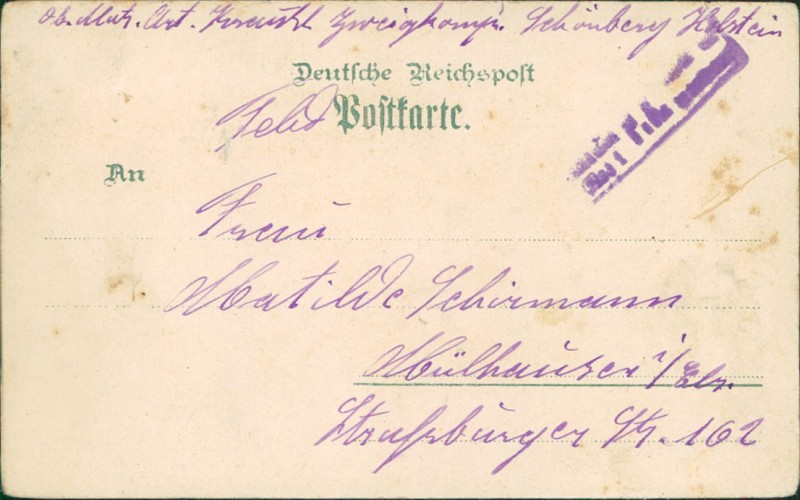 Ob. Matr. Art. Zweigkomp. Schönberg Holstein
Deutsche Reichspost
Feld Postkarte.
An
Frau
Matilde Schirmann
Mülhausen i/Els.
Straßburger Str. 162